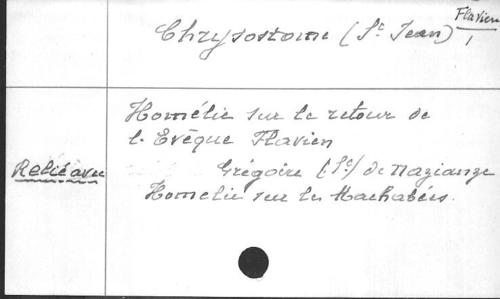 Chrysostome (St Jean) Flavien
1
Homélie sur le retour de
l. Evêque Flavien
Relié avec Grégoire (St) de Nazianze
Homelie sur les Machabées.